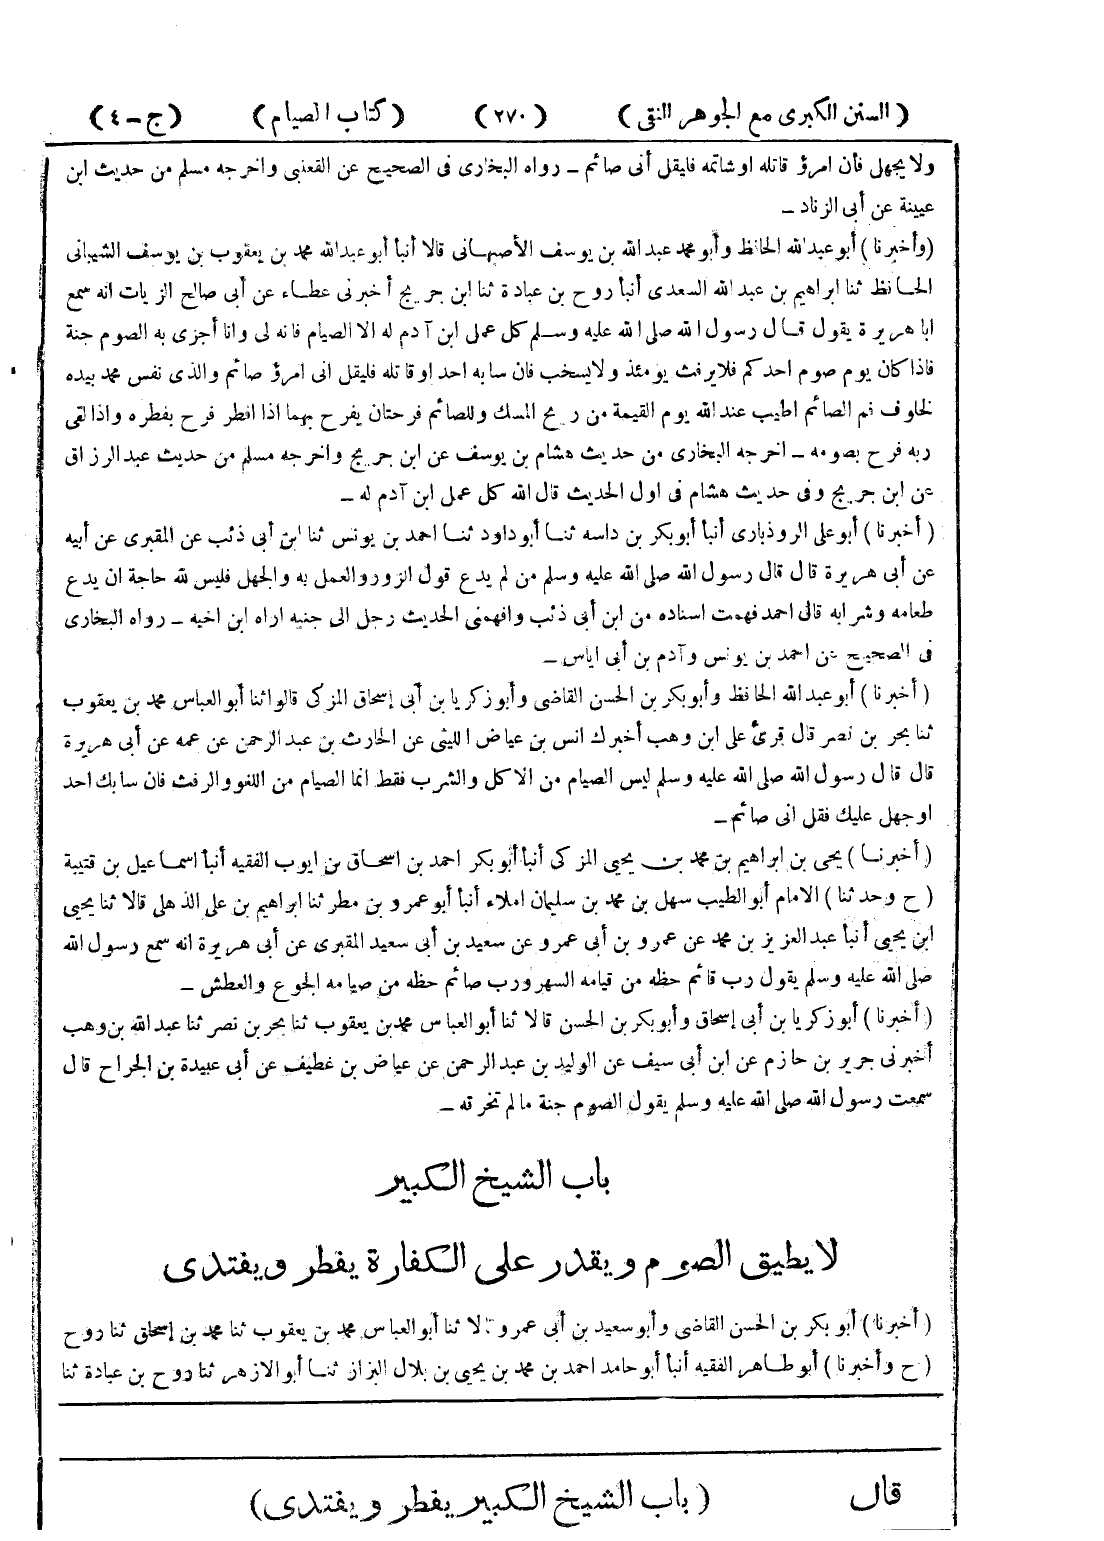 (السنن الكبرى مع الجوهر النقى) (٢٧٠) (كتاب الصيام) (ج-٤)
ولا يجهل فأن امرؤ قاتله او شاتمه فليقل أنى صائم - رواه البخارى فى الصحيح عن القعنبى واخرجه مسلم من حديث ابن
عيينة عن أبى الزناد -
(وأخبرنا) أبو عبد الله الحافظ وأبو محمد عبد الله بن يوسف الأصبهانى قالا أنبأ أبو عبدالله محمد بن يعقوب بن يوسف الشيبانى
الحافظ ثنا ابراهيم بن عبد الله السعدى أنبأ روح بن عبادة ثنا ابن جريج أخبرنى عطاء عن أبى صالح الزيات انه سمع
ابا هريرة يقول قال رسول الله صلى الله عليه وسلم كل عمل ابن آدم له الا الصيام فانه لى وانا أجزى به الصوم جنة
فاذا كان يوم صوم احدكم فلا يرفث يومئذ ولا يسخب فان سابه احد او قاتله فليقل انى امرؤ صائم والذى نفس محمد بيده
لخلوف فم الصائم اطيب عند الله يوم القيمة من ريح المسك وللصائم فرحتان يفرح بهما اذا افطر فرح بفطره واذا لقى
ربه فرح بصومه - اخرجه البخارى من حديث هشام بن يوسف عن ابن جريج واخرجه مسلم من حديث عبد الرزاق
عن ابن جريج وفى حديث هشام فى اول الحديث قال الله كل عمل ابن آدم له -
(أخبرنا) أبو على الروذبارى أنبأ أبو بكر بن داسه ثنا أبو داود ثنا احمد بن يونس ثنا ابن أبى ذئب عن المقبرى عن أبيه
عن أبى هريرة قال قال رسول الله صلى الله عليه وسلم من لم يدع قول الزور والعمل به والجهل فليس لله حاجة ان يدع
طعامه وشرابه قال احمد فهمت اسناده من ابن أبى ذئب وافهمنى الحديث رجل الى جنبه اراه ابن اخيه - رواه البخارى
فى الصحيح عن احمد بن يونس وآدم بن أبى اياس -
(أخبرنا) أبو عبد الله الحافظ وأبو بكر بن الحسن القاضى وأبو زكريا بن أبى إسحاق المزكى قالوا ثنا أبو العباس محمد بن يعقوب
ثنا بحر بن نصر قال قرئ على ابن وهب أخبرك انس بن عياض الليثى عن الحارث بن عبد الرحمن عن عمه عن أبى هريرة
قال قال رسول الله صلى الله عليه وسلم ليس الصيام من الاكل والشرب فقط انما الصيام من اللغو والرفث فان سابك احد
او جهل عليك فقل انى صائم -
(أخبرنا) يحيى بن ابراهيم بن محمد بن يحيى المزكى أنبأ أبو بكر احمد بن اسحاق بن ايوب الفقيه أنبأ اسماعيل بن قتيبة
(ح وحدثنا) الامام أبو الطيب سهل بن محمد بن سليمان املاء أنبأ أبو عمرو بن مطر ثنا ابراهيم بن على الذهلى قالا ثنا يحيى
ابن يحيى أنبأ عبد العزيز بن محمد عن عمرو بن أبى عمرو عن سعيد بن أبى سعيد المقبرى عن أبى هريرة انه سمع رسول الله
صلى الله عليه وسلم يقول رب قائم حظه من قيامه السهر ورب صائم حظه من صيامه الجوع والعطش -
(أخبرنا) أبو زكريا بن أبى إسحاق وأبو بكر بن الحسن قالا ثنا أبو العباس محمد بن يعقوب ثنا بحر بن نصر ثنا عبد الله بن وهب
أخبرنى جرير بن حازم عن ابن أبى سيف عن الوليد بن عبد الرحمن عن عياض بن غطيف عن أبى عبيدة بن الجراح قال
سمعت رسول الله صلى الله عليه وسلم يقول الصوم جنة ما لم تخرقه -
باب الشيخ الكبير
لا يطيق الصوم ويقدر على الكفارة يفطر ويفتدى
(أخبرنا) أبو بكر بن الحسن القاضى وأبو سعيد بن أبى عمرو قالا ثنا أبو العباس محمد بن يعقوب ثنا محمد بن إسحاق ثنا روح
(ح وأخبرنا) أبو طاهر الفقيه أنبأ أبو حامد احمد بن محمد بن يحيى بن بلال البزاز ثنا أبو الازهر ثنا روح بن عبادة ثنا
قال (باب الشيخ الكبير يفطر ويفتدى)